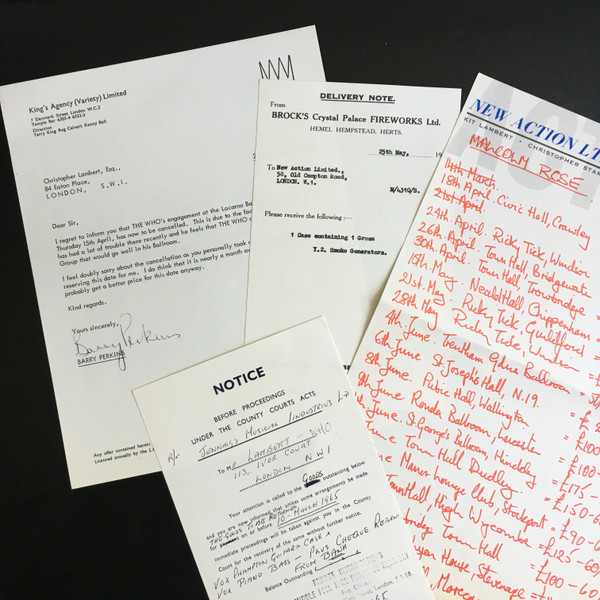 King's Agency (Variety) Limited
7 Denmark Street London W.C.2
Temple Bar
Direction
Terry King Reg Calvert Kenny Bell
Christopher Lambert, Esq.,
84 Eaton Place,
LONDON, S.W.1.
Dear Sir,
I regret to inform you that THE WHO's engagement at the Locarno Ba
Thursday 15th April, has now to be cancelled. This is due to the fac
has had a lot of trouble there recently and he feels that THE WHO
Group that would go well in his Ballroom.
I feel doubly sorry about the cancellation as you personally took
reserving this date for me. I do think that it is nearly a month
probably get a better price for this date anyway.
Kind regards.
Yours sincerely,
Barry Perkins
BARRY PERKINS
Any offer contained herein
Licensed annually by the L
DELIVERY NOTE.
From
BROCK'S Crystal Palace FIREWORKS Ltd.
HEMEL HEMPSTEAD, HERTS.
25th May,
To New Action Limited.,
58, Old Compton Road,
LONDON, W.1.
Please receive the following :—
1 Case containing 1 Gross
T.2. Smoke Generators.
NEW ACTION LT
KIT LAMBERT · CHRISTOPHER STA
MALCOLM ROSE.
14th March.
18th April. Civic Hall, Crawley
21st April.
24th April. Ricky Tick, Windsor
26th April. Town Hall, Bridgewater
30th April. Town Hall, Trowbridge
Neald Hall, Chippenham =
21st May. Ricky Tick, Guildford =
28th May. Ricky Tick, Windsor =
4th June. Trentham Gdns Ballroom = £
6th June. St Josephs Hall, N.19. = £
8th June. Public Hall, Wallington = £
9th June Ronda Ballroom, Leicester = £100-
June. St. George's Ballroom, Hinckley = £100-
June Town Hall Dudley. = £175-
ne Manor Lounge Club, Stockport = £150-
Town Hall High Wycombe = £90-
bridge Town Hall = £125-
House, Stevenage = £100-60
NOTICE
BEFORE PROCEEDINGS
UNDER THE COUNTY COURTS ACTS
JENNINGS MUSICAL INDUSTRIES L
To MR LAMBERT
113, IVOR COURT
LONDON NW1
GOODS
Your attention is called to the outstanding below
and you are now informed that unless some arrangements be made
TWO GOODS TO BE RETURNED
on or before 10-MARCH-1965
immediate proceedings will be taken against you in the County
Court for the recovery of the same without further notice.
VOX PHANTOM GUITAR & CASE
VOX PIANO BASS - PLUS CHEQUE RETURN
FROM BANK
Balance Outstanding